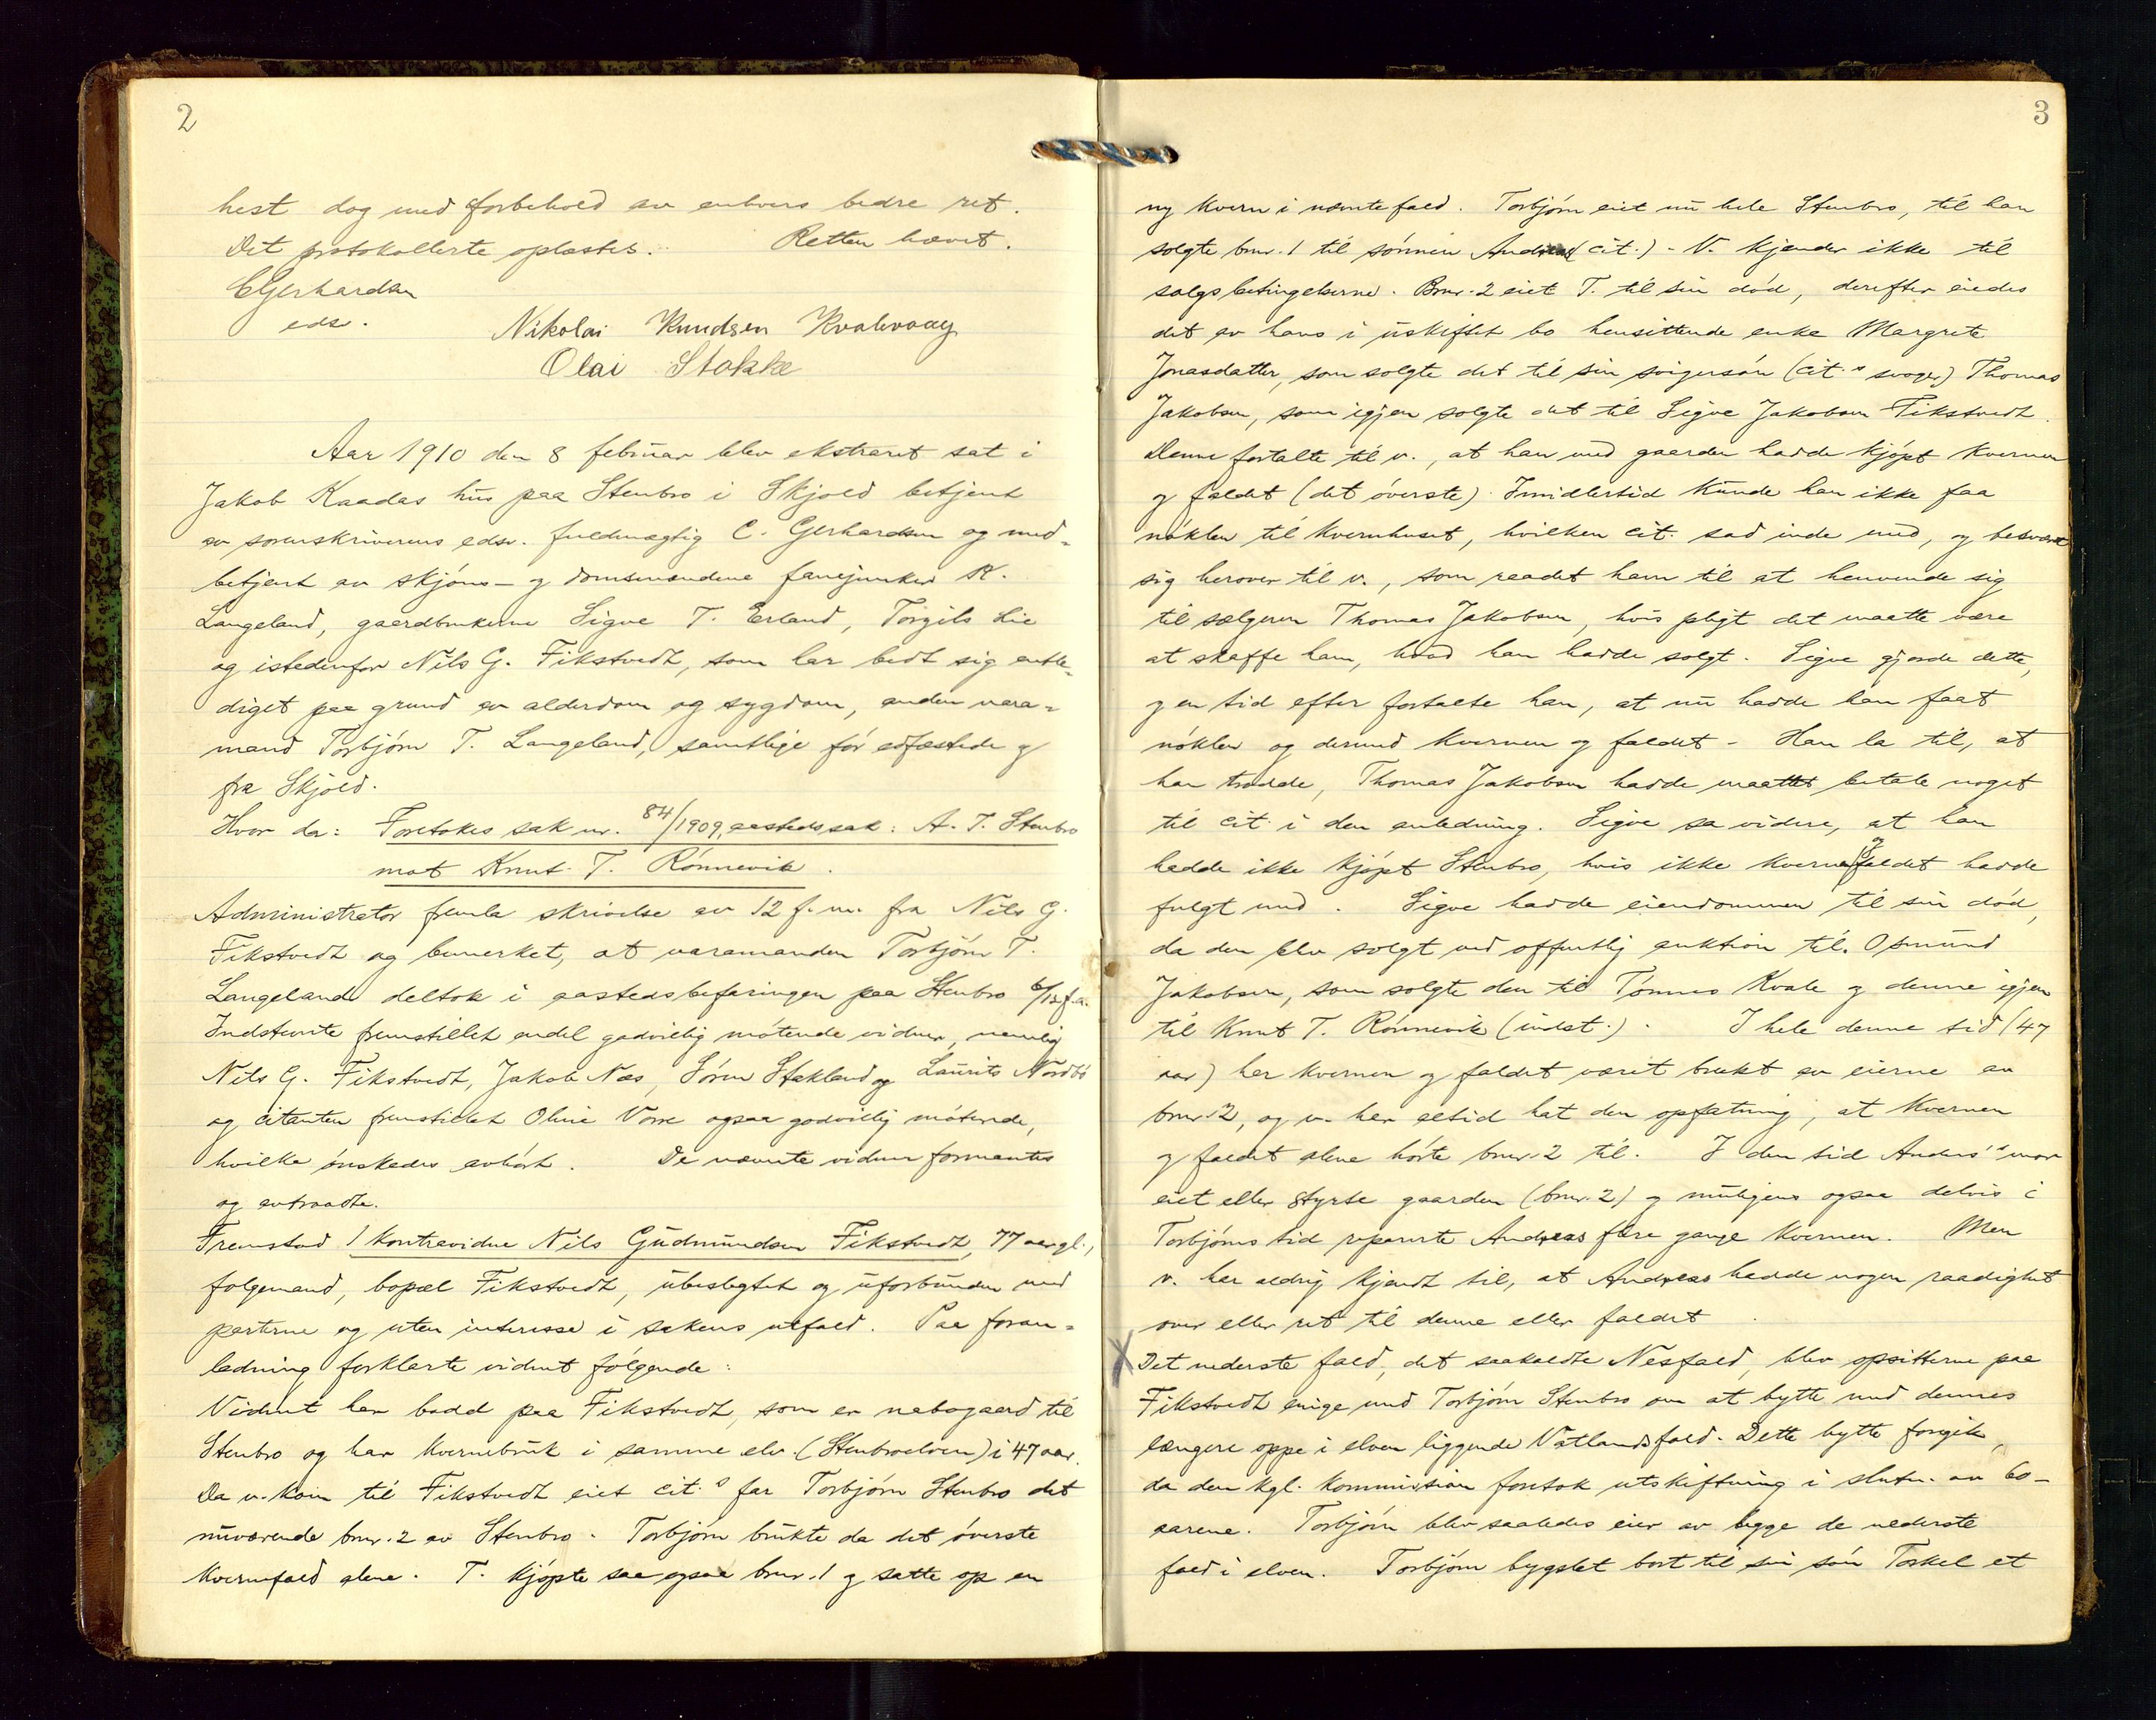 2
hest dog med forbehold av enhvers bedre ret.
Det protokollerte oplæstes. Retten hævet.
CGerhardsen
eds.
Nikolai Knudsen Kvalevaag
Olai Stakke
Aar 1910 den 8 februar blev ekstraret sat i
Jakob Kaadas hus paa Stenbro i Skjold betjent
av sorenskriverens edsv. fuldmægtig C. Gerhardsen og med-
betjent av skjöns- og domsmændene fanejunker K.
Langeland, gaardbrukerne Sigve T. Erland, Torgils Lie
og istedenfor Nils G. Fikstvedt, som har bedt sig entle-
diget paa grund av alderdom og sygdom, anden vara-
mand Torbjörn T. Langeland, samtlige för edfæstede og
fra Skjold.
Hvor da: Foretokes sak nr. 84/1909, aastedssak: A. T. Stenbro
mot Knut T. Rönnevik.
Administrator fremla skrivelse av 12 f. m. fra Nils G.
Fikstvedt og bemerket, at varamanden Torbjörn T.
Langeland deltok i aastedsbefaringen paa Stenbro 6/12 f.a.
Indstevnte fremstillet endel godvillig mötende vidner, nemlig
Nils G. Fikstvedt, Jakob Næs, Sören Stakland og Laurits Nordbö
og citanten fremstillet Oline Vorre ogsaa godvillig mötende,
hvilke önskedes avhört. De nævnte vidner formantes
og avtraadte.
Fremstod 1 kontravidne Nils Gudmundsen Fikstvedt, 77 aar gl.,
folgemand, bopæl Fikstvedt, ubeslegtet og uforbunden med
parterne og uten interesse i sakens utfald. Paa foran-
ledning forklarte vidnet fölgende:
Vidnet har bodd paa Fikstvedt, som er nabogaard til
Stenbro og har kvernebruk i samme elv (Stenbroelven) i 47 aar.
Da v. kom til Fikstvedt eiet cit.s far Torbjörn Stenbro det
nuværende brnr. 2 av Stenbro. Torbjörn brukte da det överste
kvernefald alene. T. kjöpte saa ogsaa brnr. 1 og satte op en
3
ny kvern i nævnte fald. Torbjörn eiet nu hele Stenbro, til han
solgte brnr. 1 til sönnen Andreas (cit.) - V. kjender ikke til
salgsbetingelserne. Brnr. 2 eiet T. til sin död, derefter eiedes
det av hans i uskiftet bo hensittende enke Margrete
Jonasdatter, som solgte det til sin svigersön (cit.s svoger) Thomas
Jakobsen, som igjen solgte det til Sigve Jakobsen Fikstvedt.
Denne fortalte til v., at han med gaarden hadde kjöpt kvernen
og faldet (det överste). Imidlertid kunde han ikke faa
nöklen til kvernhuset, hvilken cit. sad inde med, og besværet
sig herover til v., som raadet ham til at henvende sig
til sælgeren Thomas Jakobsen, hvis pligt det maatte være
at skaffe ham, hvad han hadde solgt. Sigve gjorde dette,
og en tid efter fortalte han, at nu hadde han faat
nöklen og dermed kvernen og faldet - Han la til, at
han trodde, Thomas Jakobsen hadde maattet betale noget
til cit. i den anledning. Sigve sa videre, at han
hadde ikke kjöpt Stenbro, hvis ikke kvernen og faldet hadde
fulgt med. Sigve hadde eiendommen til sin död,
da den blev solgt ved offentlig auktion til Osmund
Jakobsen, som solgte den til Tönnes Kvale og denne igjen
til Knut T. Rönnevik (indst.). I hele denne tid (47
aar) har kvernen og faldet været brukt av eierne av
brnr. 2, og v. har altid hat den opfatning, at kvernen
og faldet alene hörte brnr. 2 til. I den tid Andreas' mor
eiet eller styrte gaarden (brnr. 2) og muligens ogsaa delvis i
Torbjörns tid reparerte Andreas flere gange kvernen. Men
v. har aldrig kjendt til, at Andreas hadde nogen raadighet
over eller ret til denne eller faldet.
X Det nederste fald, det saakaldte Nesfald, blev opsitterne paa
Fikstvedt enige med Torbjörn Stenbro om at bytte med dennes
længere oppe i elven liggende Vatlandsfald. Dette bytte foregik,
da den kgl. kommission foretok utskiftning i slutn. av 60-
aarene. Torbjörn blev saaledes eier av begge de nederste
fald i elven. Torbjörn bygslet bort til sin sön Torkel et